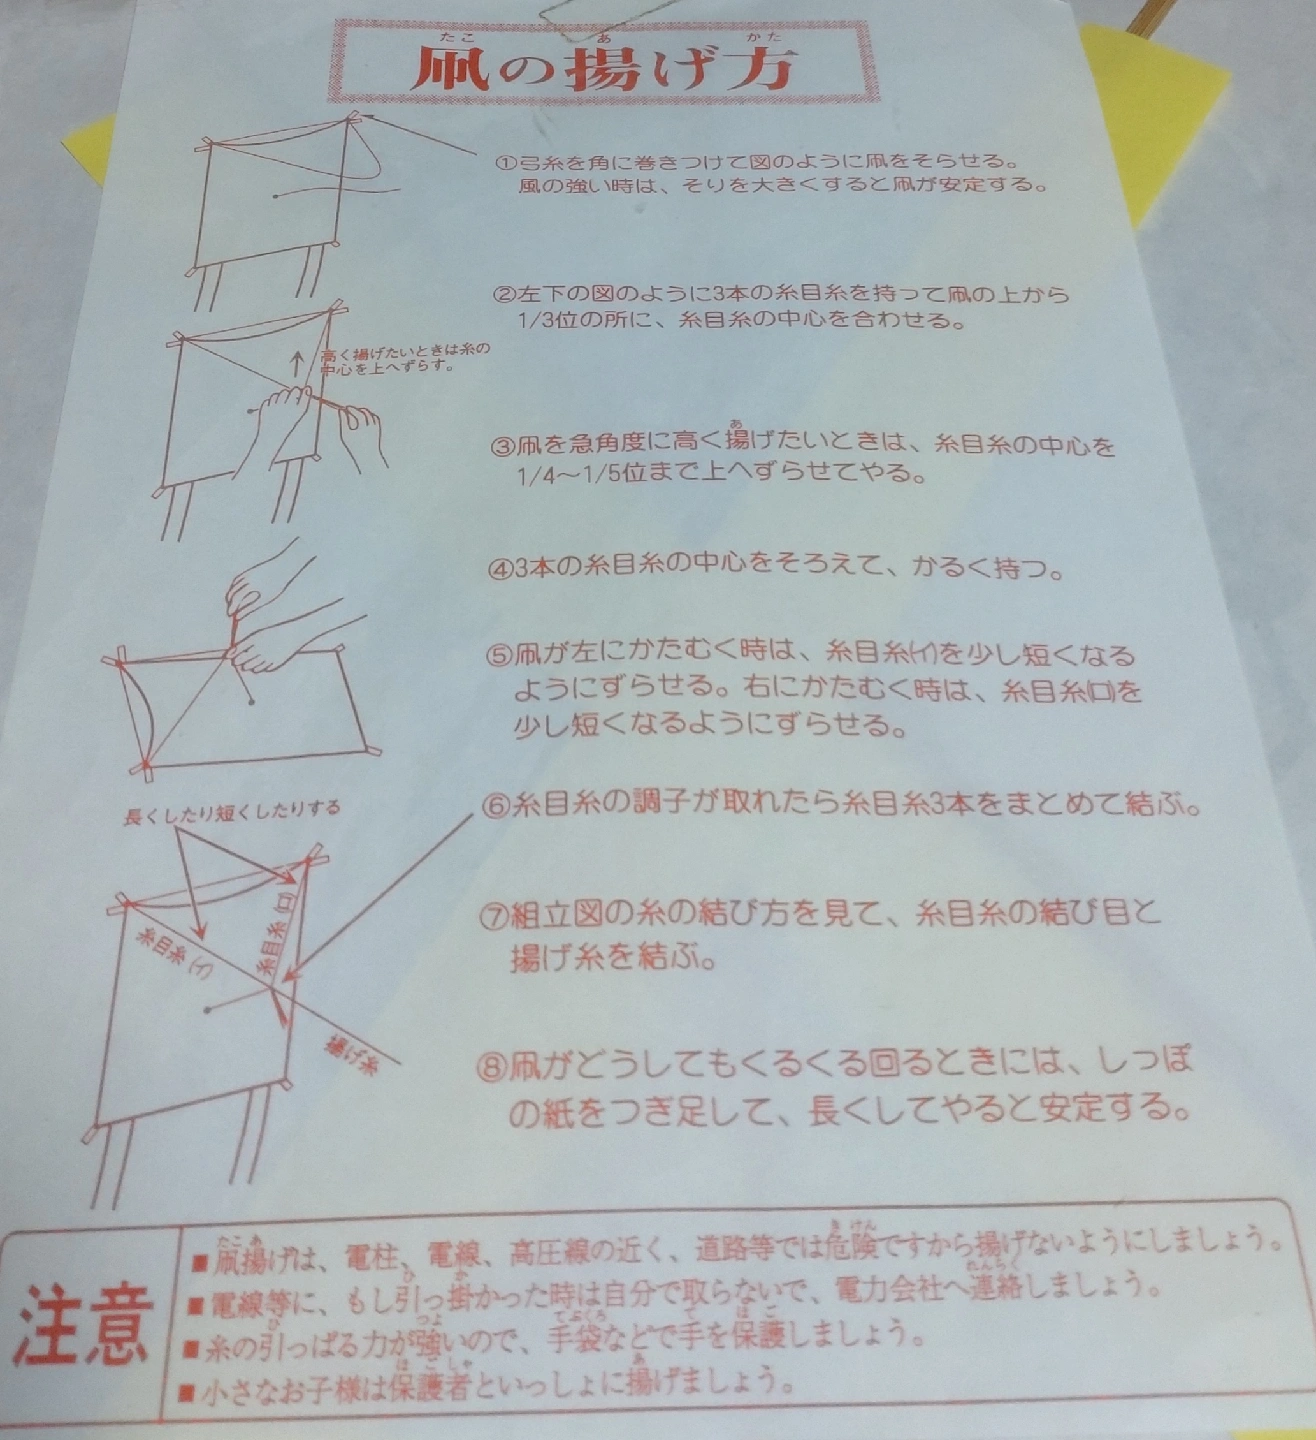 凧の揚げ方
①弓糸を角に巻きつけて図のように凧をそらせる。
風の強い時は、そりを大きくすると凧が安定する。
②左下の図のように3本の糸目糸を持って凧の上から
1/3位の所に、糸目糸の中心を合わせる。
高く揚げたいときは糸の
中心を上へずらす。
③凧を急角度に高く揚げたいときは、糸目糸の中心を
1/4〜1/5位まで上へずらせてやる。
④3本の糸目糸の中心をそろえて、かるく持つ。
⑤凧が左にかたむく時は、糸目糸(イ)を少し短くなる
ようにずらせる。右にかたむく時は、糸目糸(ロ)を
少し短くなるようにずらせる。
長くしたり短くしたりする
⑥糸目糸の調子が取れたら糸目糸3本をまとめて結ぶ。
糸目糸(イ)
糸目糸(ロ)
揚げ糸
⑦組立図の糸の結び方を見て、糸目糸の結び目と
揚げ糸を結ぶ。
⑧凧がどうしてもくるくる回るときには、しっぽ
の紙をつぎ足して、長くしてやると安定する。
注意
■凧揚げは、電柱、電線、高圧線の近く、道路等では危険ですから揚げないようにしましょう。
■電線等に、もし引っ掛かった時は自分で取らないで、電力会社へ連絡しましょう。
■糸の引っぱる力が強いので、手袋などで手を保護しましょう。
■小さなお子様は保護者といっしょに揚げましょう。